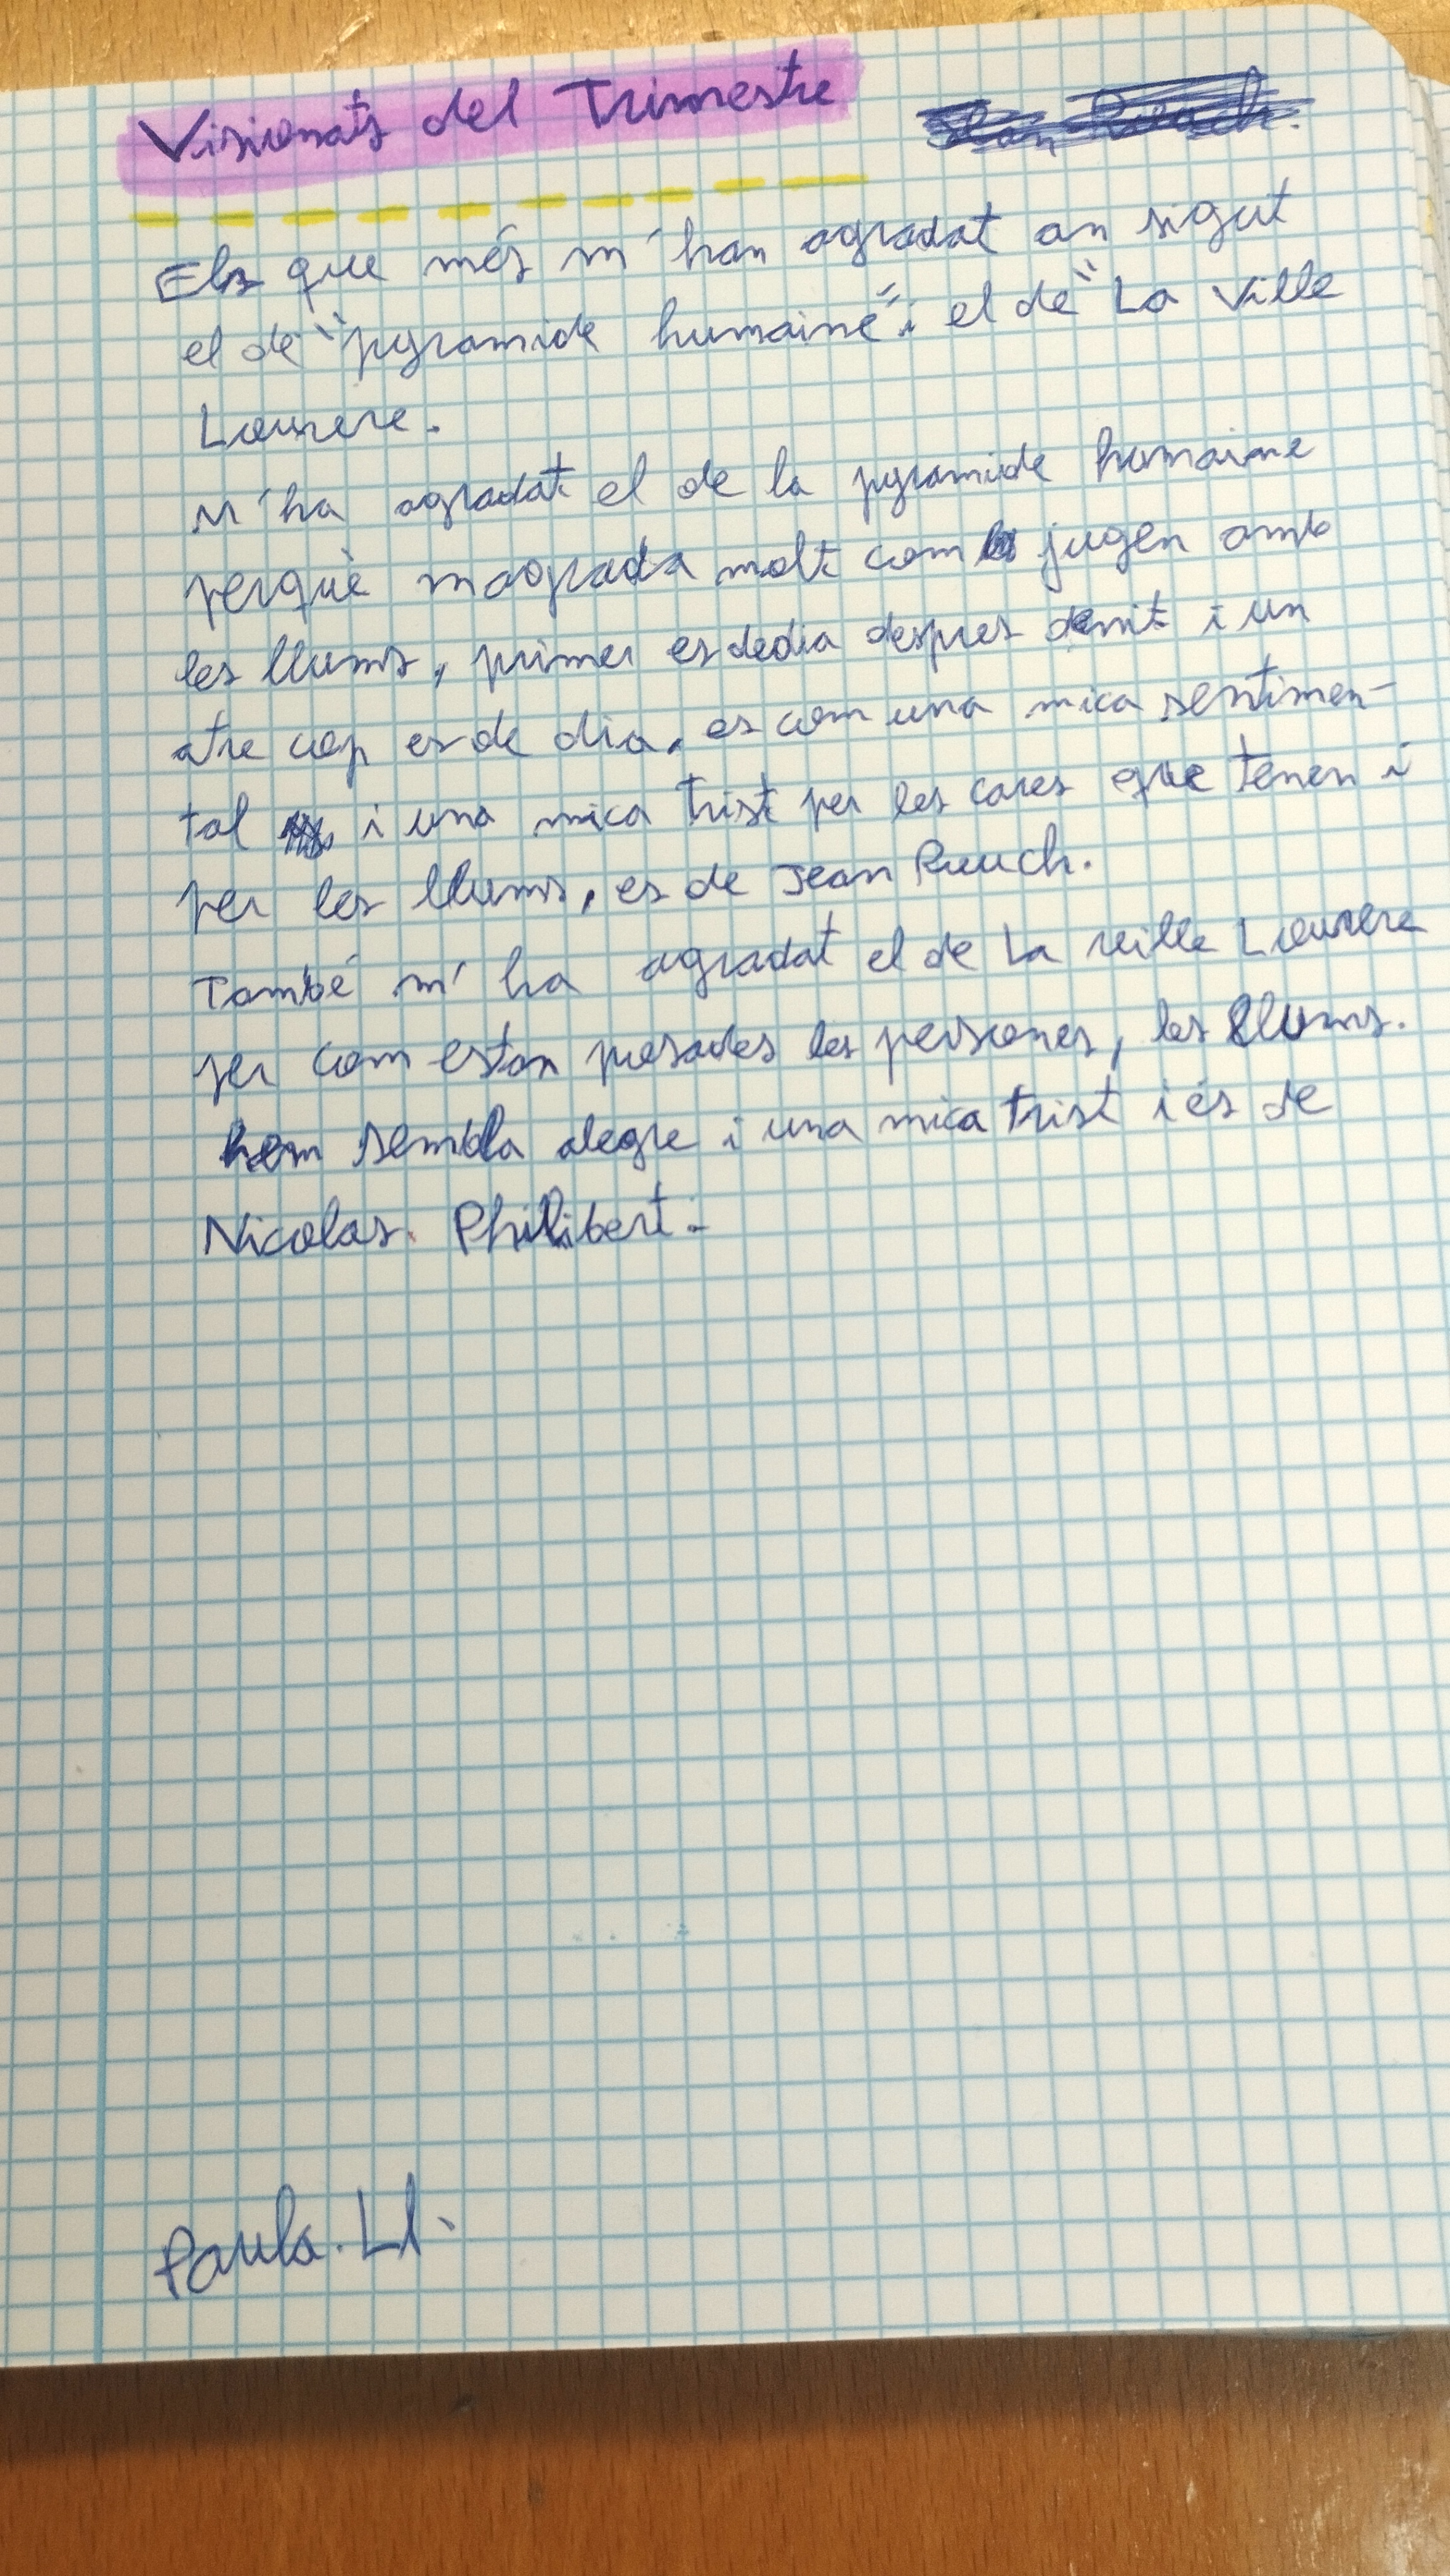 Visionats del Trimestre
Els que més m'han agradat an sigut
el de "pyramide humaine" i el de "La Ville
Louvere.
M'ha agradat el de la pyramide humaine
perquè magrada molt com jugen amb
les llums, primer es dedia despres denit i un
atre cop es de dia, es com una mica sentimen-
tal i una mica trist per les cares que tenen i
per les llums, es de Jean Ruuch.
També m'ha agradat el de La ville Louvere
per com estan posades les persones, les llums.
hem sembla alegre i una mica trist i és de
Nicolas Philibert.
Paula. Ll.